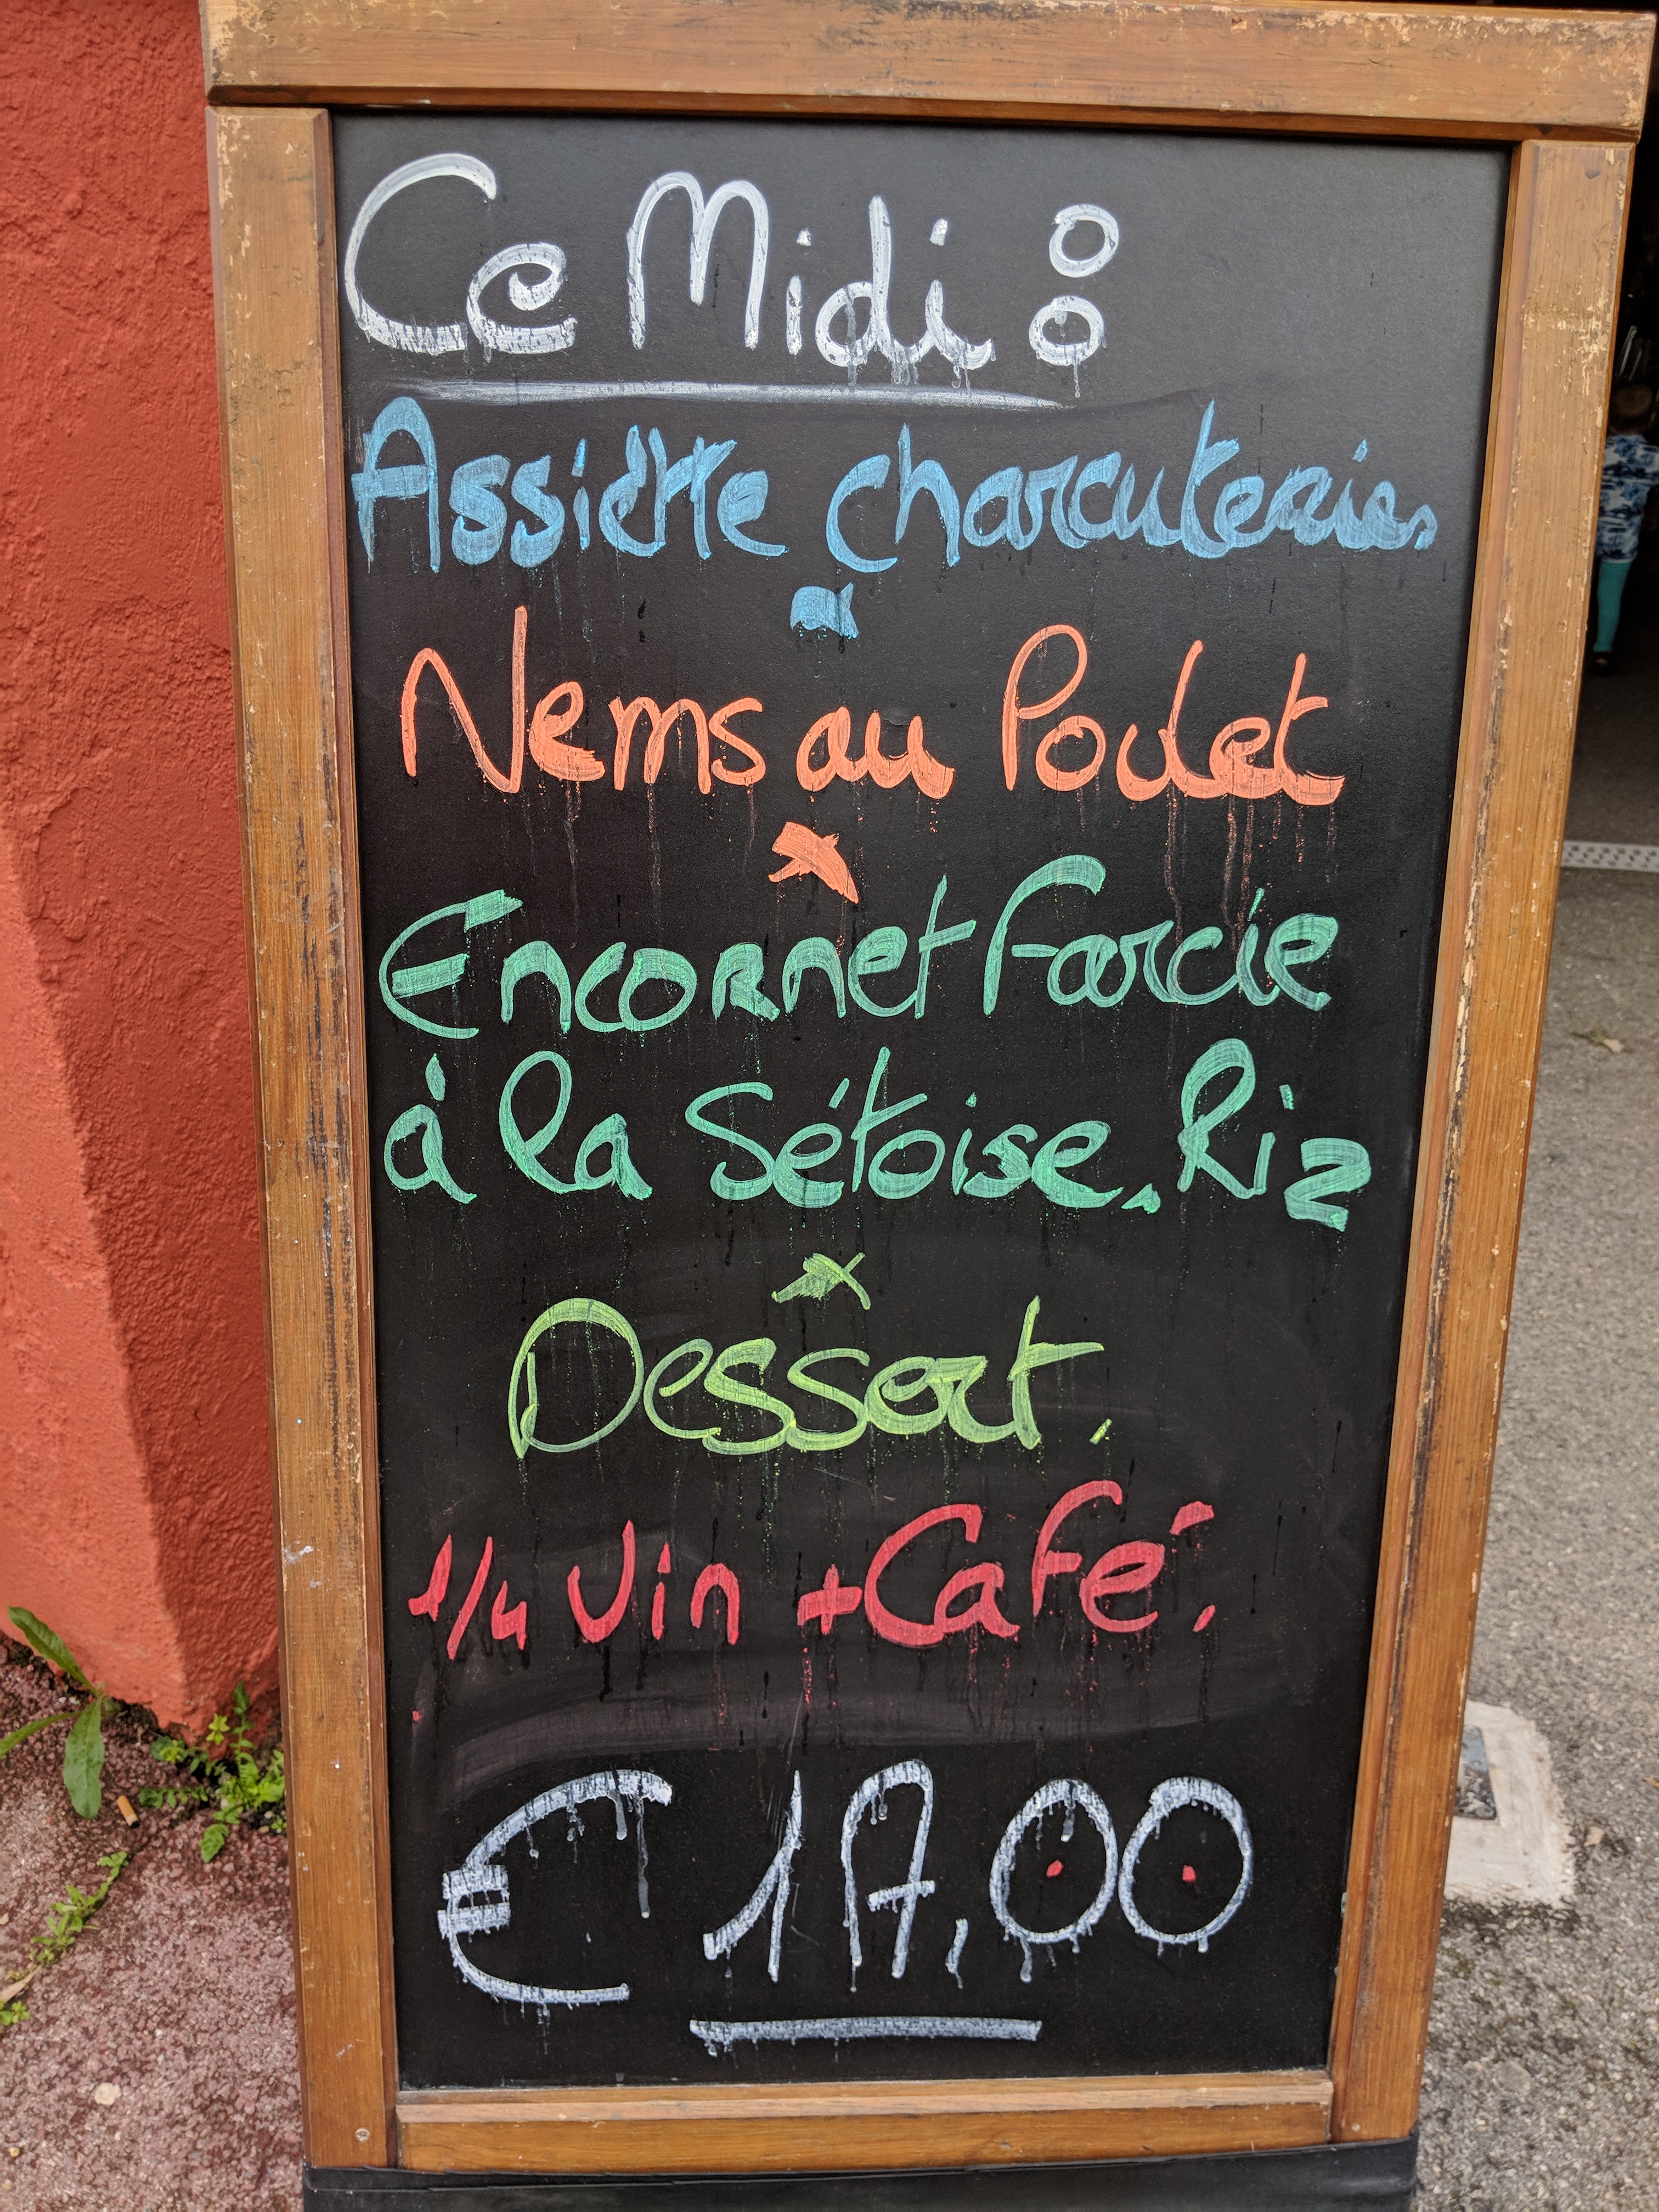 Ce Midi :
Assiette charcuteries
x
Nems au Poulet
x
Encornet Farcie
à la Sétoise. Riz
x
Dessert.
1/4 Vin + Café.
€ 17,00